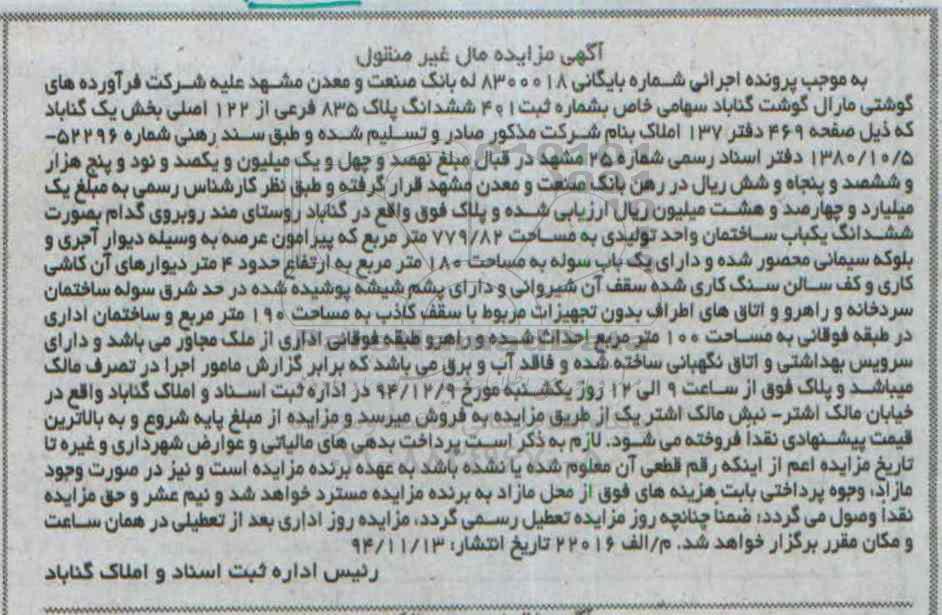 آگهی مزایده مال غیر منقول
به موجب پرونده اجرائی شماره بایگانی ۸۳۰۰۰۱۸ له بانک صنعت و معدن مشهد علیه شرکت فرآورده های
گوشتی مارال گوشت گناباد سهامی خاص بشماره ثبت ۴۰۱ ششدانگ پلاک ۸۳۵ فرعی از ۱۲۲ اصلی بخش یک گناباد
که ذیل صفحه ۴۶۹ دفتر ۱۳۷ املاک بنام شرکت مذکور صادر و تسلیم شده و طبق سند رهنی شماره ۵۲۲۹۶-
۱۳۸۰/۱۰/۵ دفتر اسناد رسمی شماره ۲۵ مشهد در قبال مبلغ نهصد و چهل و یک میلیون و یکصد و نود و پنج هزار
و ششصد و پنجاه و شش ریال در رهن بانک صنعت و معدن مشهد قرار گرفته و طبق نظر کارشناس رسمی به مبلغ یک
میلیارد و چهارصد و هشت میلیون ریال ارزیابی شده و پلاک فوق واقع در گناباد روستای مند روبروی گدام بصورت
ششدانگ یکباب ساختمان واحد تولیدی به مساحت ۷۷۹/۸۲ متر مربع که پیرامون عرصه به وسیله دیوار آجری و
بلوکه سیمانی محصور شده و دارای یک باب سوله به مساحت ۱۸۰ متر مربع به ارتفاع حدود ۴ متر دیوارهای آن کاشی
کاری و کف سالن سنگ کاری شده سقف آن شیروانی و دارای پشم شیشه پوشیده شده در حد شرق سوله ساختمان
سردخانه و راهرو و اتاق های اطراف بدون تجهیزات مربوط با سقف کاذب به مساحت ۱۹۰ متر مربع و ساختمان اداری
در طبقه فوقانی به مساحت ۱۰۰ متر مربع احداث شده و راهرو طبقه فوقانی اداری از ملک مجاور می باشد و دارای
سرویس بهداشتی و اتاق نگهبانی ساخته شده و فاقد آب و برق می باشد که برابر گزارش مامور اجرا در تصرف مالک
میباشد و پلاک فوق از ساعت ۹ الی ۱۲ روز یکشنبه مورخ ۹۴/۱۲/۹ در اداره ثبت اسناد و املاک گناباد واقع در
خیابان مالک اشتر - نبش مالک اشتر یک از طریق مزایده به فروش میرسد و مزایده از مبلغ پایه شروع و به بالاترین
قیمت پیشنهادی نقدا فروخته می شود. لازم به ذکر است پرداخت بدهی های مالیاتی و عوارض شهرداری و غیره تا
تاریخ مزایده اعم از اینکه رقم قطعی آن معلوم شده یا نشده باشد به عهده برنده مزایده است و نیز در صورت وجود
مازاد، وجوه پرداختی بابت هزینه های فوق از محل مازاد به برنده مزایده مسترد خواهد شد و نیم عشر و حق مزایده
نقدا وصول می گردد؛ ضمنا چنانچه روز مزایده تعطیل رسمی گردد، مزایده روز اداری بعد از تعطیلی در همان ساعت
و مکان مقرر برگزار خواهد شد. م/الف ۲۲۰۱۶ تاریخ انتشار: ۹۴/۱۱/۱۳
رئیس اداره ثبت اسناد و املاک گناباد